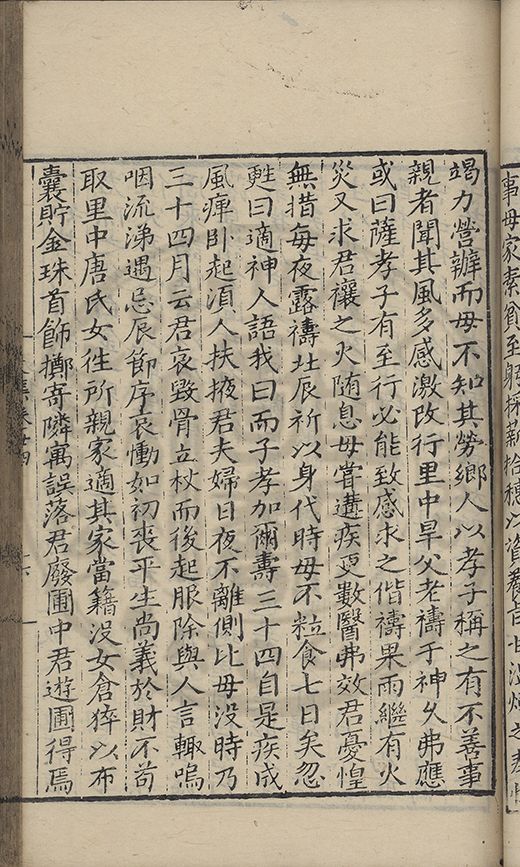 事母家素貧至躬採薪拾穗以資養旨甘
竭力營辦而母不知其勞鄉人以孝子稱之有不善事
親者聞其風多感激改行里中旱父老禱于神久弗應
或曰薩孝子有至行必能致感求之偕禱果雨繼有火
災又求君禳之火随息母甞遘疾更數醫弗效君憂惶
無措每夜露禱北辰祈以身代時母不粒食七日矣忽
甦曰適神人語我曰而子孝加爾壽三十四自是疾成
風痺卧起湏人扶掖君夫婦日夜不離側比母没時乃
三十四月云君哀毀骨立杖而後起服除與人言輙嗚
咽流涕遇忌辰節序哀慟如初喪平生尚義於財不苟
取里中唐氏女往所親家適其家當籍没女倉猝以布
囊貯金珠首飾擲寄隣寓誤落君廢圃中君遊圃得焉